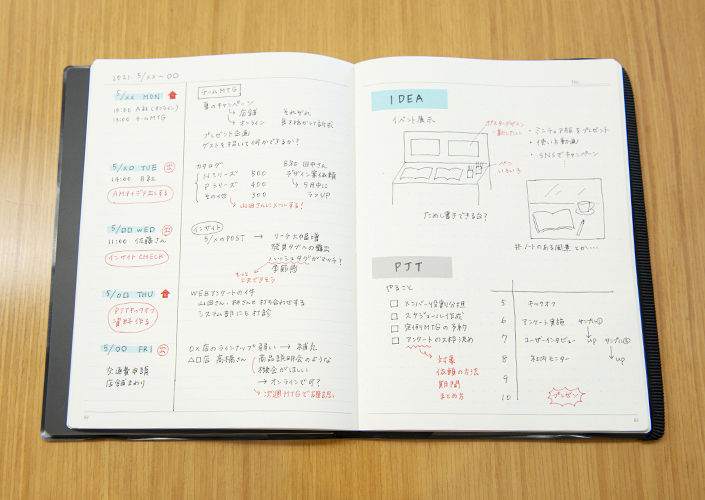 2021. 5/xx 〜 00
5/xx MON
10:00 A社(オンライン)
13:00 チームMTG
5/x0 TUE
14:00 B社
AMアイデア出しする
5/00 WED
11:00 佐藤さん
インサイトCHECK
5/0□ THU
PJTキックオフ
資料作る
5/00 FRI
交通費申請
店舗まわり
チームMTG
夏のキャンペーン
↳ 店舗 それぞれ
↳ オンライン
プレゼント企画
ゲストを招いて何かできるか?
カタログ
Nシリーズ 500
Pシリーズ 400
その他 300
B社 田中さん
デザイン案依頼
↳ 5月中に
ラフUP
↳ 山田さんにメールする!
インサイト
5/xのPOST → リーチ大幅増
発見タブへの露出
ハッシュタグがマッチ?
季節的
WEBアンケートの件
山田さん、林さんと打ち合わせする
システム部にも打診
○×店のラインアップ 弱い → 補充
△□店 高橋さん 商品説明会のような
機会がほしい
→ オンラインで可?
↳ 次週MTGで確認
IDEA
イベント展示
ペン
いろいろ
ためし書きできる台?
・ミニチュア版をプレゼント
・使い方動画
・SNSでキャンペーン
#ノートのある風景 とか…
PJT
やること
□ メンバー役割分担
□ スケジュール作成
□ 定例MTGの予約
□ アンケートの大枠決め
↳ 対象
依頼の方法
期間
まとめ方
5 キックオフ
6 アンケート実施 サンプル①
7 ユーザーインタビュー ↓up サンプル②
8 社内モニター ↓up
9
10 プレゼン